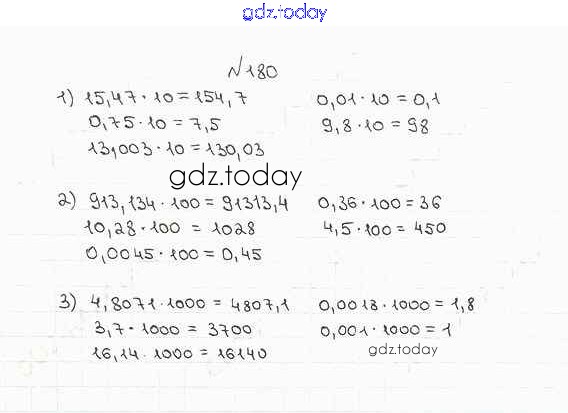 gdz.today
№180
1) 15,47 · 10 = 154,7 0,01 · 10 = 0,1
0,75 · 10 = 7,5 9,8 · 10 = 98
13,003 · 10 = 130,03
gdz.today
2) 913,134 · 100 = 91313,4 0,36 · 100 = 36
10,28 · 100 = 1028 4,5 · 100 = 450
0,0045 · 100 = 0,45
3) 4,8071 · 1000 = 4807,1 0,0018 · 1000 = 1,8
3,7 · 1000 = 3700 0,001 · 1000 = 1
16,14 · 1000 = 16140
gdz.today